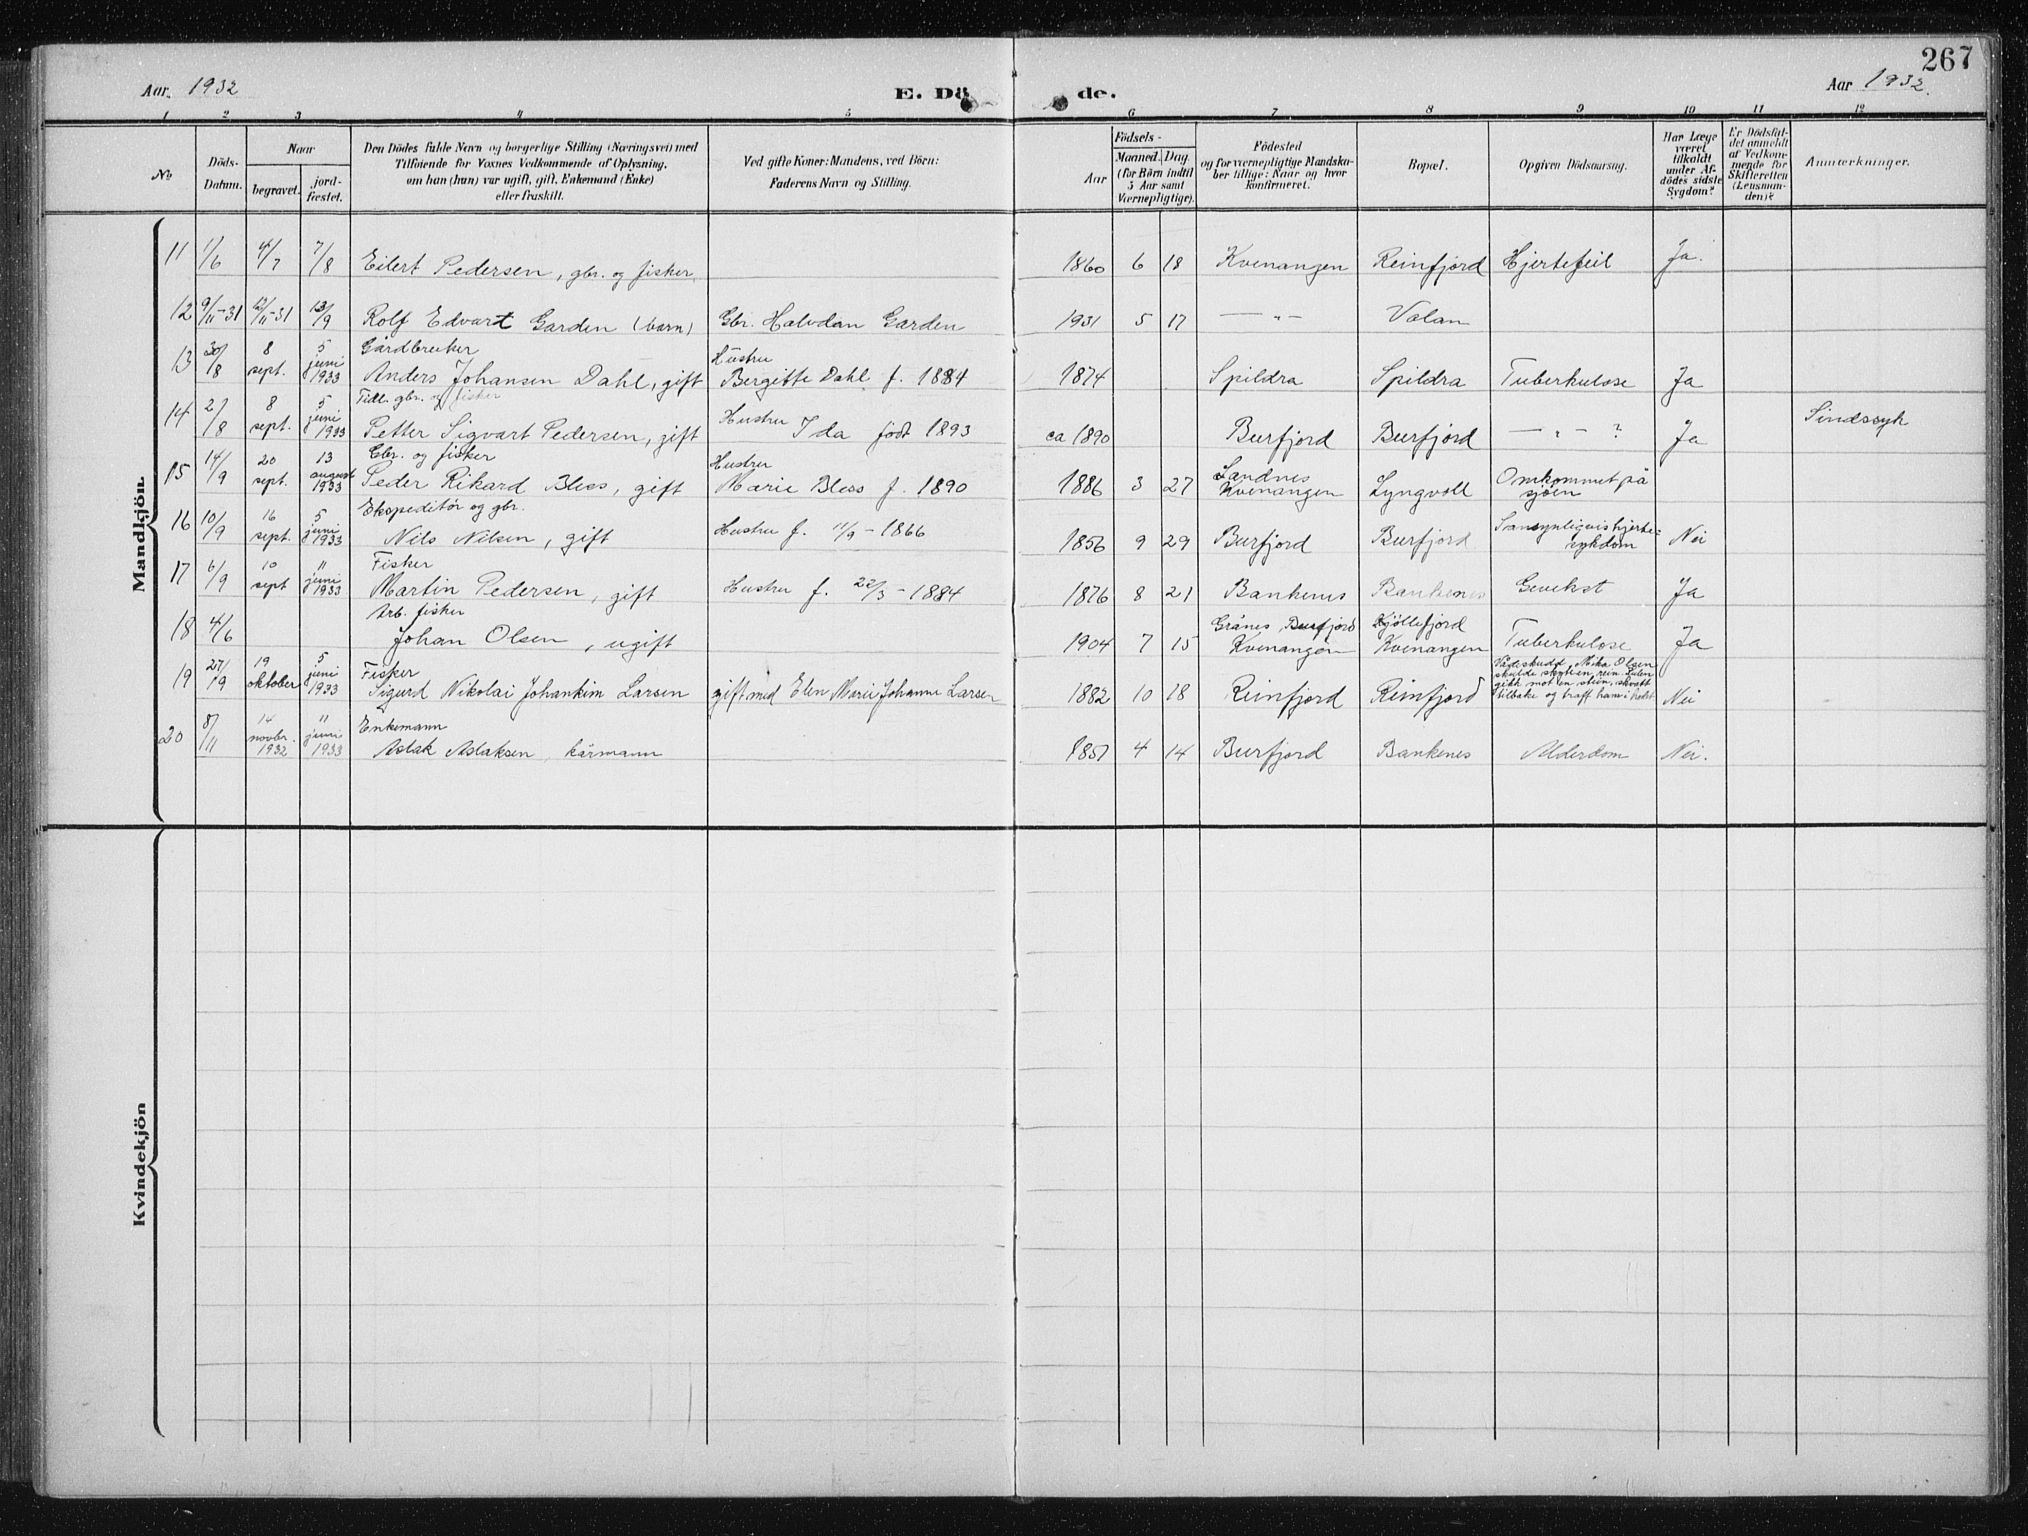 267
Aar 1932
E. Dö
de.
Aar 1932.
1 2 3 4 5 6 7 8 9 10 11 12
No
Döds-
Datum.
Naar
begravet.
jord-
fæstet.
Den Dödes fulde Navn og borgerlige Stilling (Næringsvei) med
Tilföiende for Voxnes Vedkommende af Oplysning,
om han (hun) var ugift, gift, Enkemand (Enke)
eller fraskilt.
Ved gifte Koner: Mandens, ved Börn:
Faderens Navn og Stilling.
Födsels-
Aar
Maaned. Dag
(for Börn indtil
5 Aar samt
Værnepligtige).
Födested
og for værnepligtige Mandska-
ber tillige: Naar og hvor
konfirmeret.
Bopæl.
Opgiven Dödsaarsag.
Har Læge
været
tilkaldt
under Af-
dödes sidste
Sygdom?
Er Dödsfal-
det anmeldt
af Vedkom-
mende for
Skifteretten
(Lensman-
den)?
Anmærkninger.
Mandkjön.
11 1/6 4/7 7/8 Eilert Pedersen, gbr. og fisker. 1860 6 18 Kvenangen Reinfjord Hjertefeil Ja.
12 9/11-31 12/11-31 13/9 Rolf Edvart Garden (barn) Gbr. Halvdan Garden 1931 5 17 — " — Valan
13 30/8 8 sept. 5 juni 1933 Gårdbruker
Anders Johansen Dahl, gift Hustru Bergitte Dahl f. 1884 1874 Spildra Spildra Tuberkulose Ja
14 2/8 8 sept. 5 juni 1933 Tidl. gbr. og fisker
Petter Sigvart Pedersen, gift Hustru Ida født 1893 ca 1890 Burfjord Burfjord — " — ? Ja Sindssyk
15 14/9 20 sept. 13 august 1933 Gbr. og fisker
Peder Rikard Bless, gift Hustru Marie Bless f. 1890 1886 3 27 Sandnes Kvenangen Lyngvoll Omkommet på sjøen
16 10/9 16 sept. 5 juni 1933 Ekspeditør og gbr.
Nils Nilsen, gift Hustru f. 11/9 - 1866 1856 9 29 Burfjord Burfjord Sansynligvis hjerte- sykdom Nei
17 6/9 10 sept 11 juni 1933 Fisker
Martin Pedersen, gift Hustru f. 22/3 - 1884 1876 8 21 Bankenes Bankenes Gevekst Ja
18 4/6 Arb. fisker
Johan Olsen, ugift 1904 7 15 Grånes, Burfjord Kvenangen Kjøllefjord Kvenangen Tuberkulose Ja
19 27/9 19 oktober 5 juni 1933 Fisker
Sigurd Nikolai Johankim Larsen gift med Elen Marie Johanne Larsen 1882 10 18 Reinfjord Reinfjord Vådeskudd, Mika Olsen skulde skyte en rein. Kulen gikk mot en stein, skvatt tilbake og traff ham i Nei
20 8/11 14 novbr. 1932 11 juni 1933 Enkemann
Aslak Aslaksen, kårmann 1851 4 14 Burfjord Bankenes Alderdom Nei.
Kvindekjön